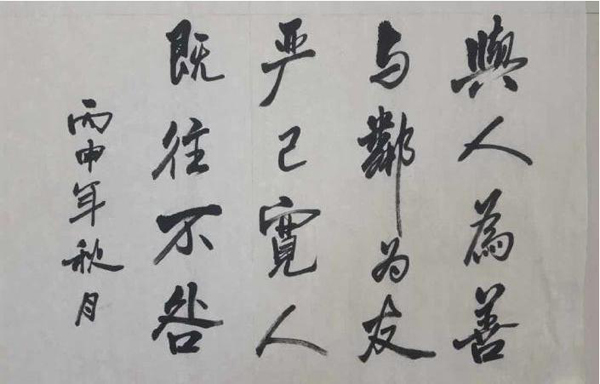 與人為善
与鄰为友
严己寬人
既往不咎
丙申年秋月